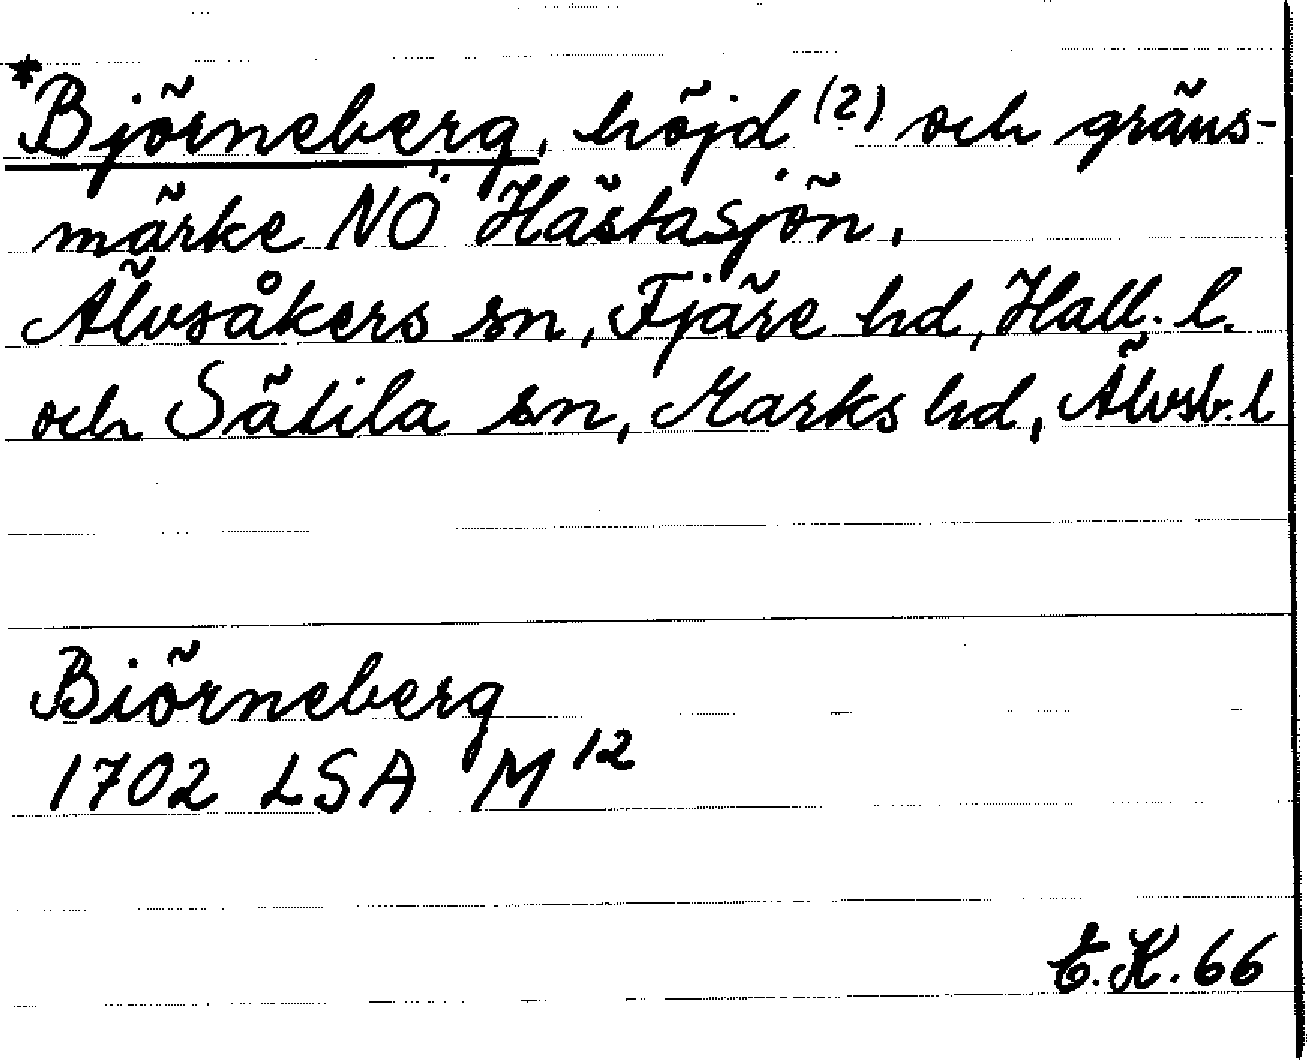 *Björneberg, höjd (?) och gräns-
märke NÖ Hästasjön.
Älvsåkers sn, Fjäre hd, Hall. l.
och Sätila sn, Marks hd, Älvsb. l
Biörneberg
1702 LSA M 12
E.K. 66